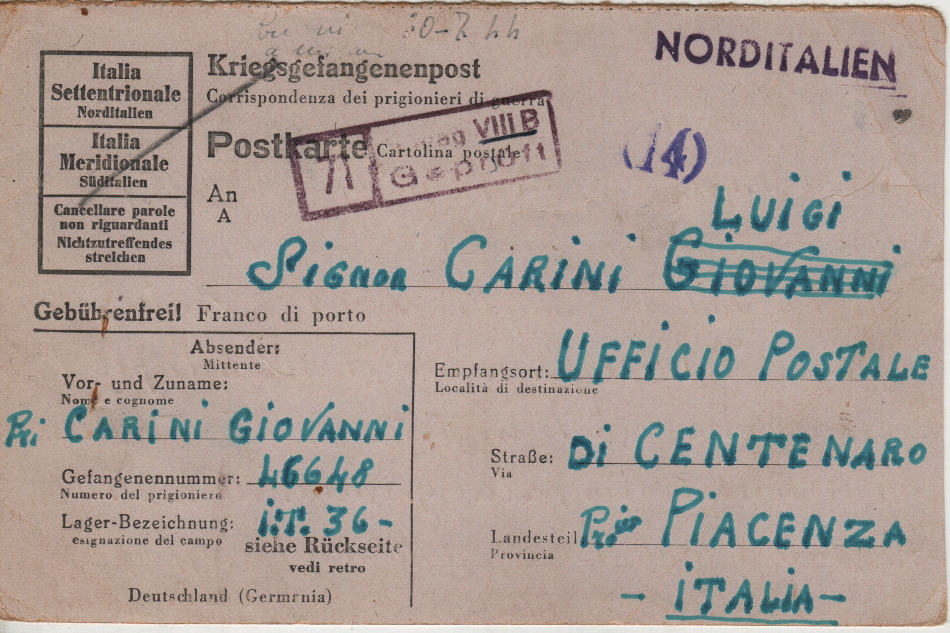 30-7.44
NORDITALIEN
Italia
Settentrionale
Norditalien
Italia
Meridionale
Süditalien
Cancellare parole
non riguardanti
Nichtzutreffendes
streichen
Kriegsgefangenenpost
Corrispondenza dei prigionieri di guerra
Postkarte Cartolina postale
71 VIII B
Geprüft
(14)
An
A
LUIGI
Signor CARINI GIOVANNI
Gebührenfrei! Franco di porto
Absender:
Mittente
Vor- und Zuname:
Nome e cognome
Pri CARINI GIOVANNI
Gefangenennummer: 46648
Numero del prigioniero
Lager-Bezeichnung: i.T. 36-
esignazione del campo siehe Rückseite
vedi retro
Deutschland (Germania)
Empfangsort: UFFICIO POSTALE
Località di destinazione
Straße: Di CENTENARO
Via
Landesteil: PIACENZA
Provincia
- ITALIA -